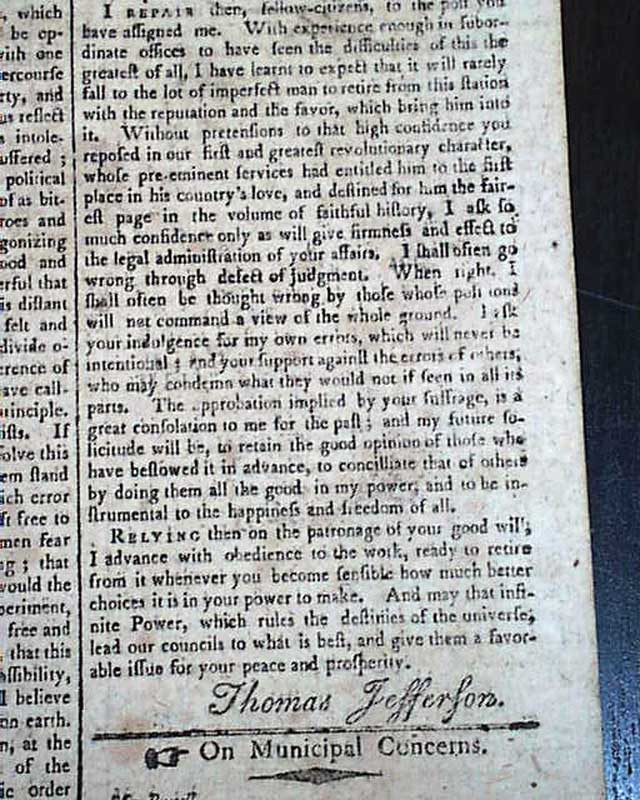 , which
be op-
with one
tercourse
rty, and
us reflect
s intole-
uffered ;
political
of as bit-
roes and
gonizing
ood and
erful that
is distant
felt and
divide o-
erence of
ave call-
rinciple.
ists. If
solve this
em stand
ich error
ft free to
men fear
ng ; that
would the
periment,
free and
that this
assibility,
I believe
on earth.
n, at the
of the
ic order
I REPAIR then, fellow-citizens, to the post you
have assigned me. With experience enough in subor-
dinate offices to have seen the difficulties of this the
greatest of all, I have learnt to expect that it will rarely
fall to the lot of imperfect man to retire from this station
with the reputation and the favor, which bring him into
it. Without pretensions to that high confidence you
reposed in our first and greatest revolutionary character,
whose pre-eminent services had entitled him to the first
place in his country's love, and destined for him the fair-
est page in the volume of faithful history, I ask so
much confidence only as will give firmness and effect to
the legal administration of your affairs. I shall often go
wrong through defect of judgment. When right, I
shall often be thought wrong by those whose positions
will not command a view of the whole ground. I ask
your indulgence for my own errors, which will never be
intentional ; and your support against the errors of others,
who may condemn what they would not if seen in all its
parts. The approbation implied by your suffrage, is a
great consolation to me for the past ; and my future so-
licitude will be, to retain the good opinion of those who
have bestowed it in advance, to concilliate that of others
by doing them all the good in my power, and to be in-
strumental to the happiness and freedom of all.
RELYING then on the patronage of your good will,
I advance with obedience to the work, ready to retire
from it whenever you become sensible how much better
choices it is in your power to make. And may that infi-
nite Power, which rules the destinies of the universe,
lead our councils to what is best, and give them a favor-
able issue for your peace and prosperity.
Thomas Jefferson.
On Municipal Concerns.